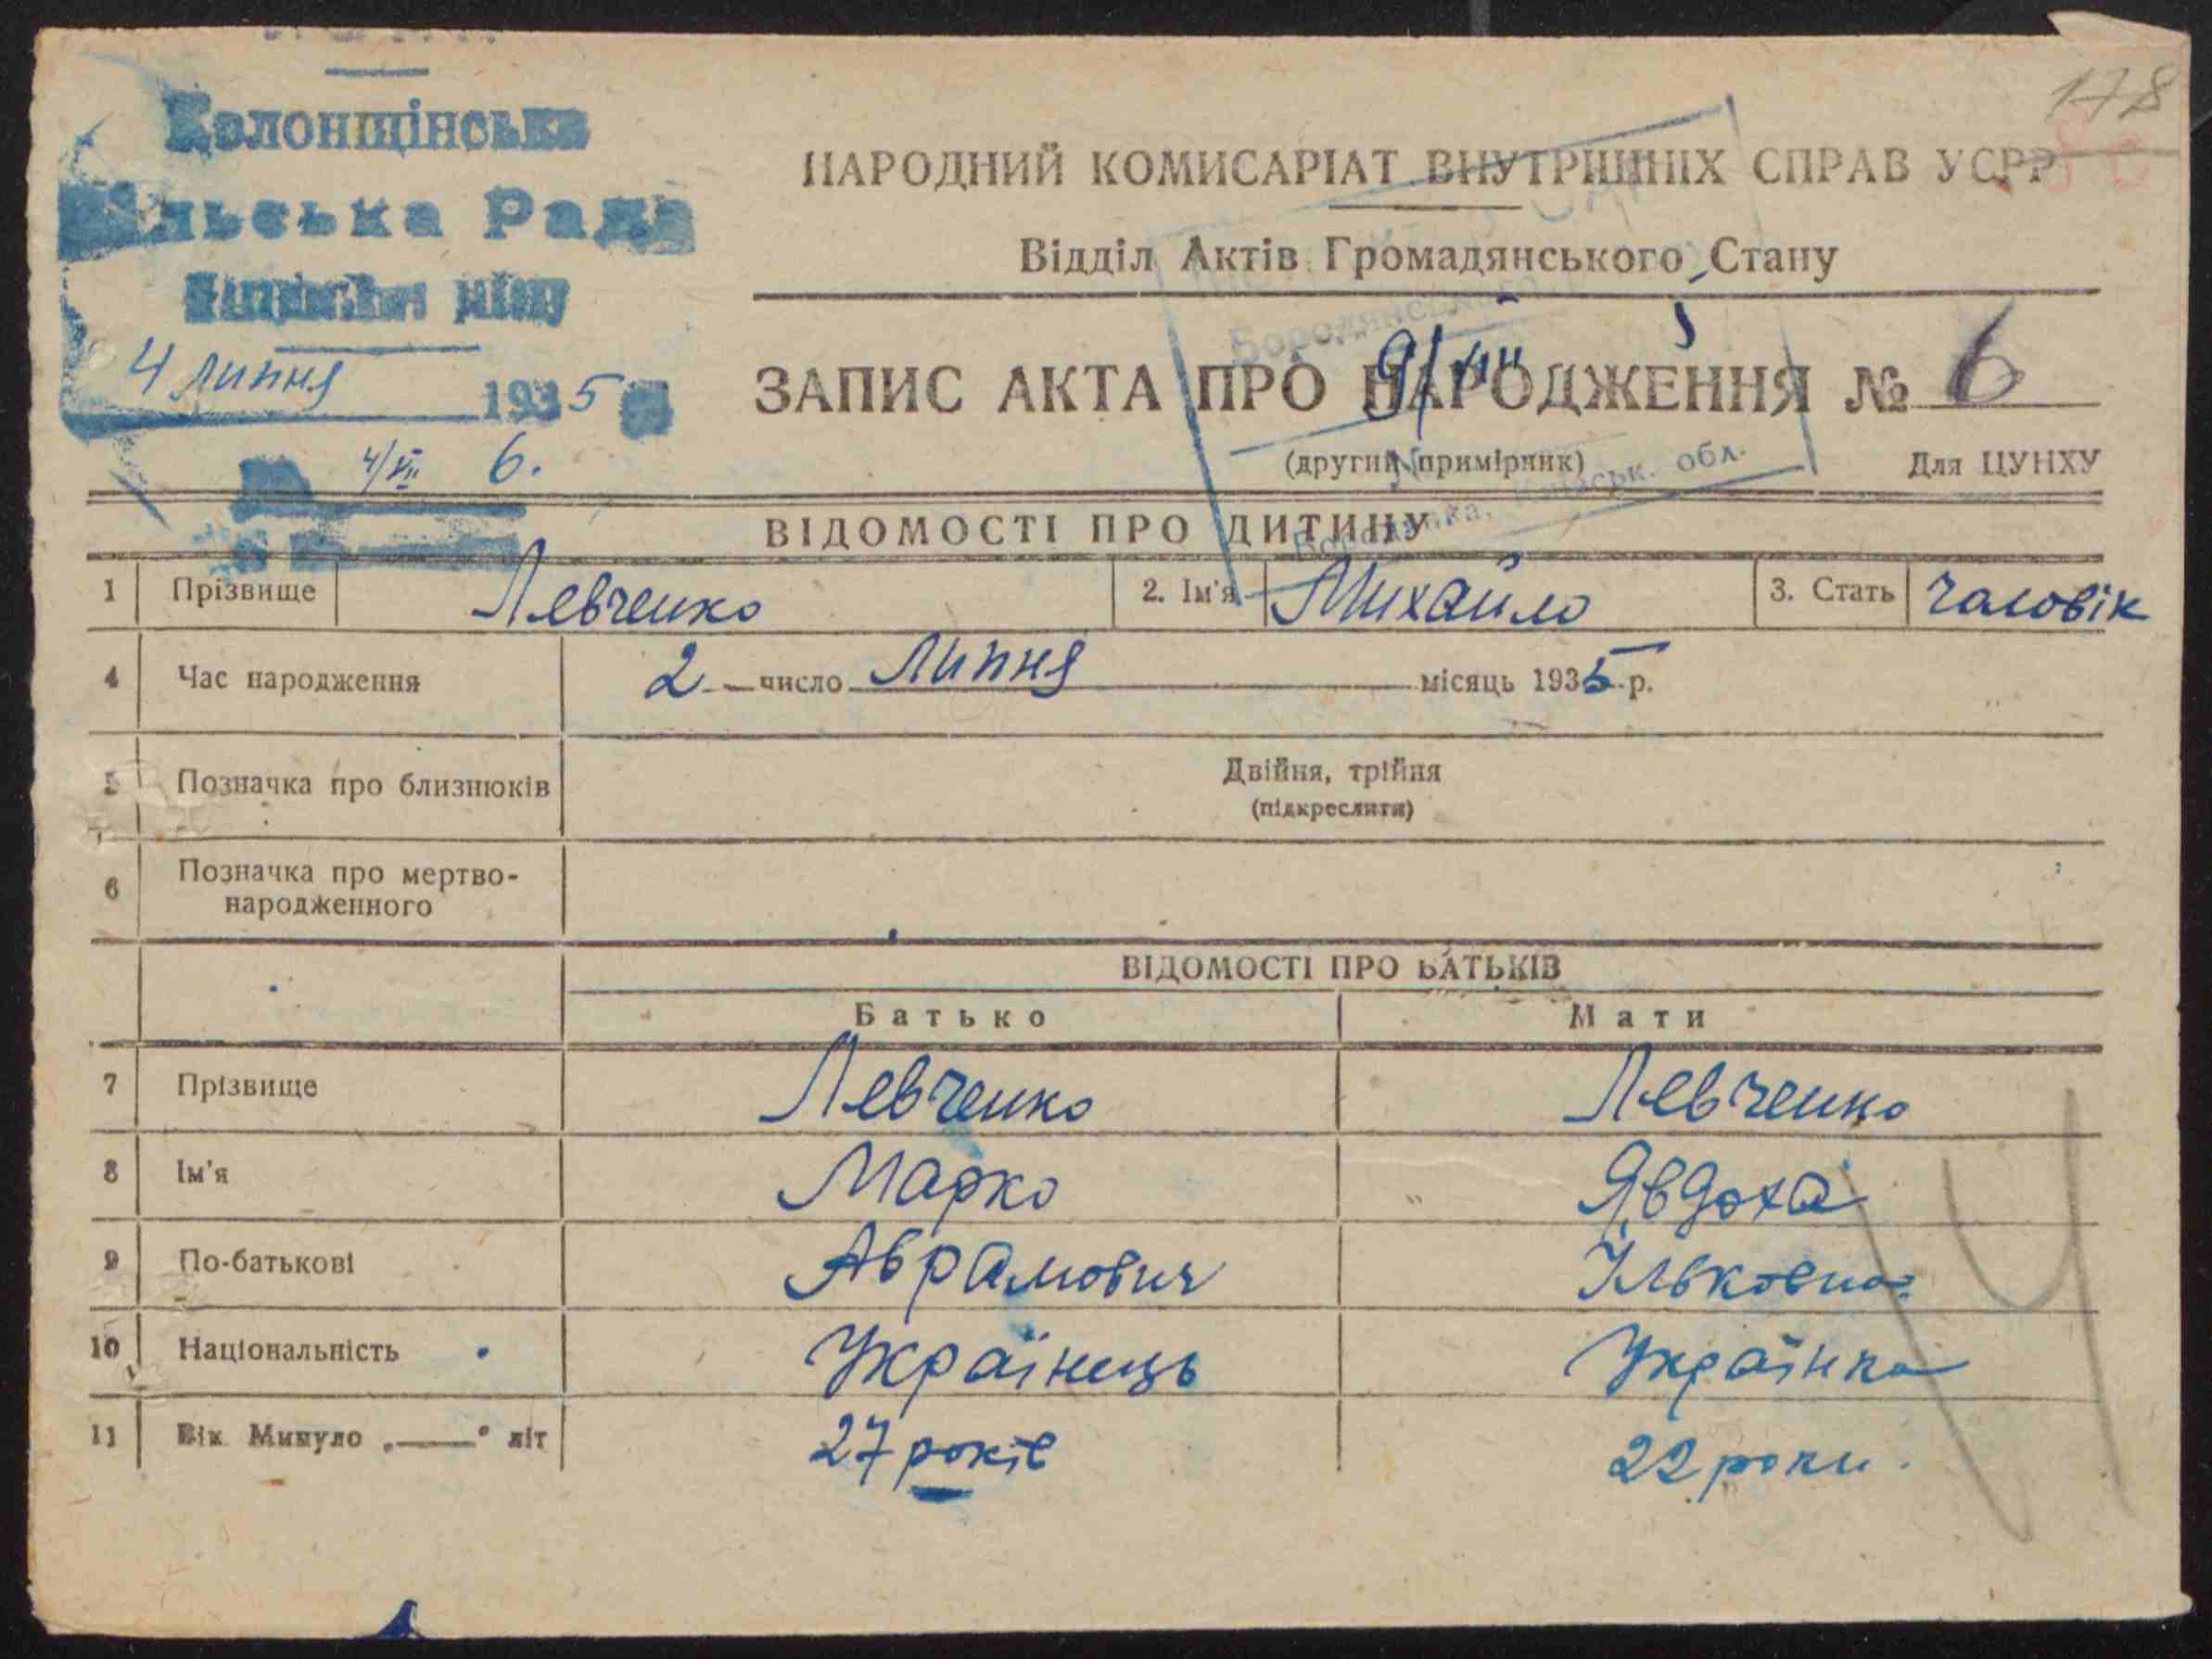 178
Колонщінська
Сільська Рада
4 липня 1935
4/VII 6.
НАРОДНИЙ КОМИСАРІАТ ВНУТРІШНІХ СПРАВ УСРР
Відділ Актів Громадянського Стану
Бородянського
9/VII
ЗАПИС АКТА ПРО НАРОДЖЕННЯ № 6
(другий примірник) Для ЦУНХУ
Бородянка, Київськ. обл.
ВІДОМОСТІ ПРО ДИТИНУ
1 Прізвище Левченко 2. Ім'я Михайло 3. Стать чаловік
4 Час народження 2 число Липня місяць 1935 р.
5 Позначка про близнюків Двійня, трійня
(підкреслити)
6 Позначка про мертво-
народженного
ВІДОМОСТІ ПРО БАТЬКІВ
Батько Мати
7 Прізвище Левченко Левченко
8 Ім'я Марко Явдоха
9 По-батькові Аврамович Ільковна
10 Національність Українець Українка
11 Вік Минуло „——“ літ 27 років 22 роки.